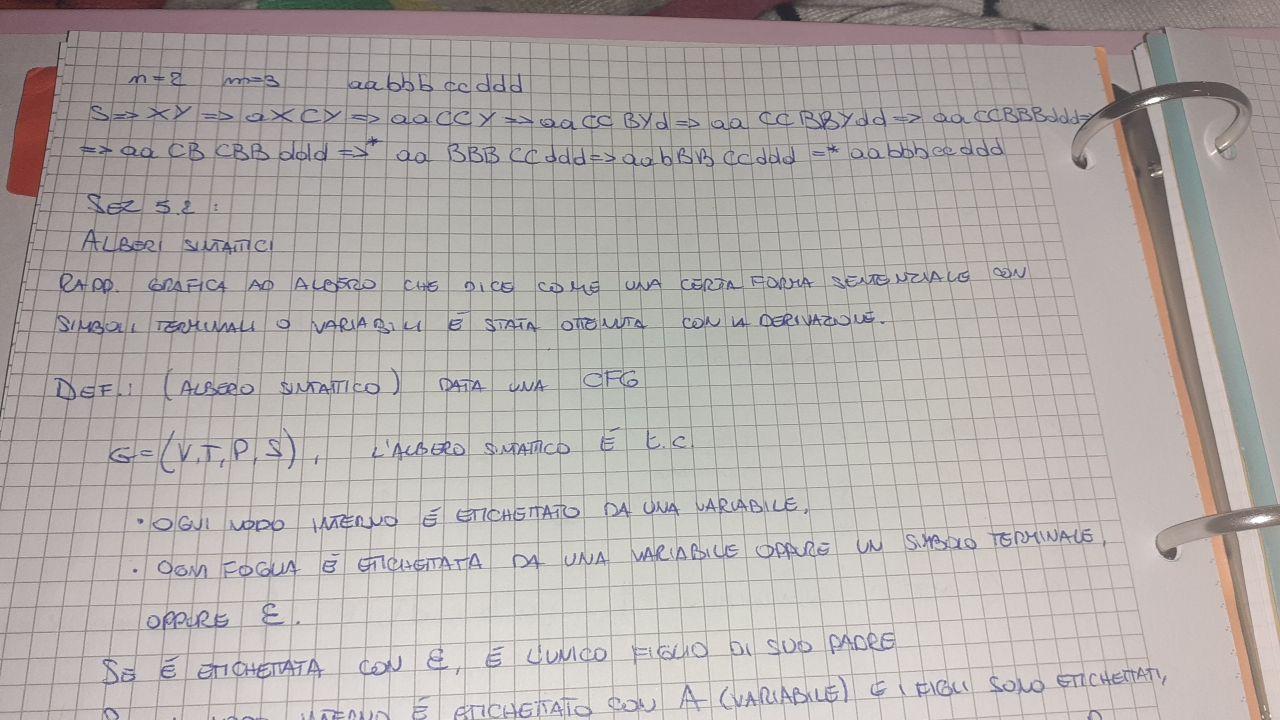 n=2 m=3 aabbbccddd
S => XY => aXCY => aaCCY => aaCCBYd => aaCCBBYdd => aaCCBBBddd =>
=> aaCBCBBddd =>* aaBBBCCddd => aabBBCCddd =>* aabbbccddd
SEZ 5.2:
ALBERI SINTATTICI
RAPP. GRAFICA AD ALBERO CHE DICE COME UNA CERTA FORMA SENTENZIALE CON
SIMBOLI TERMINALI O VARIABILI È STATA OTTENUTA CON LA DERIVAZIONE.
DEF.: (ALBERO SINTATTICO) DATA UNA CFG
G=(V,T,P,S), L'ALBERO SINTATTICO È t.c.
· OGNI NODO INTERNO È ETICHETTATO DA UNA VARIABILE,
· OGNI FOGLIA È ETICHETTATA DA UNA VARIABILE OPPURE UN SIMBOLO TERMINALE,
OPPURE ε.
SE È ETICHETTATA CON ε, È L'UNICO FIGLIO DI SUO PADRE
INTERNO È ETICHETTATO CON A (VARIABILE) E I FIGLI SONO ETICHETTATI,